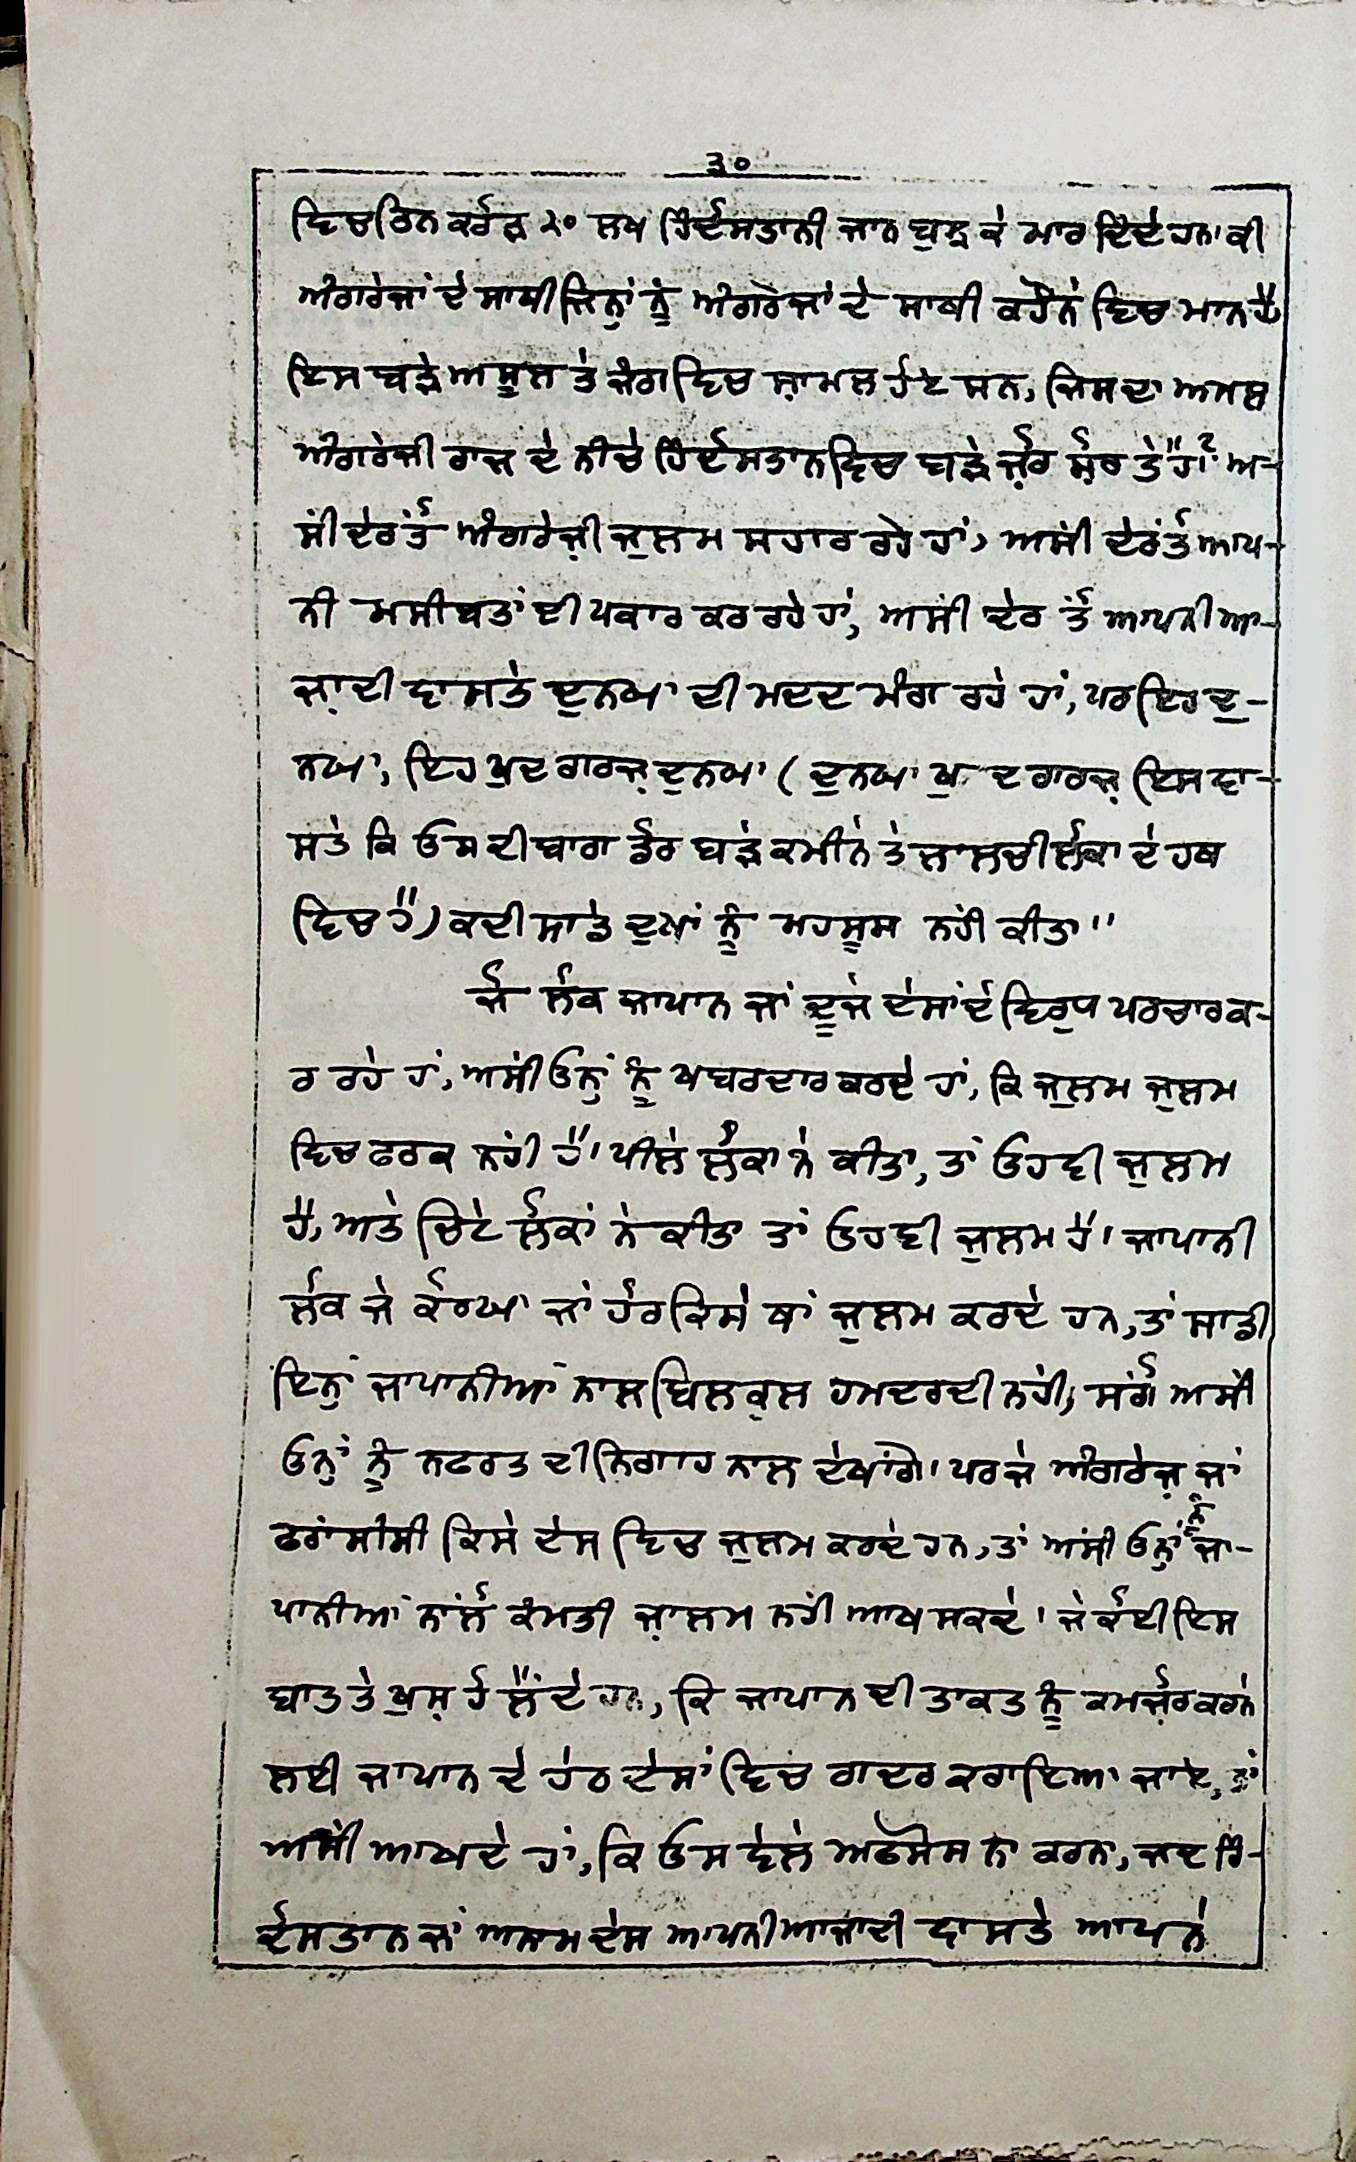 ੩੦
ਵਿਚ ਤਿਨ ਕਰੋੜ ੨੦ ਲਖ ਹਿੰਦੋਸਤਾਨੀ ਜਾਨ ਬੁਝ ਕੇ ਮਾਰ ਦਿੰਦੇ ਹਨ। ਕੀ
ਅੰਗਰੇਜਾਂ ਦੇ ਸਾਥੀ ਜਿਨ੍ਹਾਂ ਨੂੰ ਅੰਗਰੇਜਾਂ ਦੇ ਸਾਥੀ ਕਹੌਨੇ ਵਿਚ ਮਾਨ ਹੈ
ਇਸ ਬੜੇ ਅਸੂਲ ਤੇ ਜੰਗ ਵਿਚ ਸ਼ਾਮਲ ਹੋਏ ਸਨ, ਜਿਸ ਦਾ ਅਮਲ
ਅੰਗਰੇਜੀ ਰਾਜ ਦੇ ਨੀਚੇ ਹਿੰਦੋਸਤਾਨ ਵਿਚ ਬੜੇ ਜ਼ੋਰ ਸ਼ੋਰ ਤੇ ਹੈ? ਅ-
ਸੀਂ ਦੇਰ ਤੋਂ ਅੰਗਰੇਜ਼ੀ ਜ਼ੁਲਮ ਸਹਾਰ ਰਹੇ ਹਾਂ, ਅਸੀਂ ਦੇਰ ਤੋਂ ਆਪ-
ਨੀ ਮਸੀਬਤਾਂ ਦੀ ਪਕਾਰ ਕਰ ਰਹੇ ਹਾਂ, ਅਸੀਂ ਦੇਰ ਤੋਂ ਆਪਨੀ ਆ-
ਜ਼ਾਦੀ ਵਾਸਤੇ ਦੁਨਯਾ ਦੀ ਮਦਦ ਮੰਗ ਰਹੇ ਹਾਂ, ਪਰ ਇਹ ਦੁ-
ਨਯਾ, ਇਹ ਖੁਦ ਗਰਜ਼ ਦੁਨਯਾ ( ਦੁਨਯਾ ਖੁਦ ਗਰਜ਼ ਇਸ ਵਾ-
ਸਤੇ ਕਿ ਓਸ ਦੀ ਬਾਗ ਡੋਰ ਬੜੇ ਕਮੀਨੇ ਤੇ ਲਾਲਚੀ ਲੋਕਾਂ ਦੇ ਹਥ
ਵਿਚ ਹੈ) ਕਦੀ ਸਾਡੇ ਦੁਖਾਂ ਨੂੰ ਮਹਸੂਸ ਨਹੀਂ ਕੀਤਾ"
ਜੋ ਲੋਕ ਜਾਪਾਨ ਜਾਂ ਦੂਜੇ ਦੇਸਾਂ ਦੇ ਵਿਰੁਧ ਪਰਚਾਰ ਕ-
ਰ ਰਹੇ ਹਾਂ, ਅਸੀਂ ਓਨ੍ਹਾਂ ਨੂੰ ਖਬਰਦਾਰ ਕਰਦੇ ਹਾਂ, ਕਿ ਜ਼ੁਲਮ ਜ਼ੁਲਮ
ਵਿਚ ਫਰਕ ਨਹੀਂ ਹੈ। ਪੀਲੇ ਲੋਕਾਂ ਨੇ ਕੀਤਾ, ਤਾਂ ਓਹ ਵੀ ਜ਼ੁਲਮ
ਹੈ, ਅਤੇ ਚਿਟੇ ਲੋਕਾਂ ਨੇ ਕੀਤਾ ਤਾਂ ਓਹ ਵੀ ਜ਼ੁਲਮ ਹੈ। ਜਾਪਾਨੀ
ਲੋਕ ਜੇ ਕੋਰਯਾ ਜਾਂ ਹੋਰ ਕਿਸੇ ਥਾਂ ਜ਼ੁਲਮ ਕਰਦੇ ਹਨ, ਤਾਂ ਸਾਡੀ
ਇਨ੍ਹਾਂ ਜਾਪਾਨੀਆਂ ਨਾਲ ਬਿਲਕੁਲ ਹਮਦਰਦੀ ਨਹੀਂ, ਸਗੋਂ ਅਸੀਂ
ਓਨ੍ਹਾਂ ਨੂੰ ਨਫਰਤ ਦੀ ਨਿਗਾਹ ਨਾਲ ਦੇਖਾਂਗੇ। ਪਰ ਜੇ ਅੰਗਰੇਜ਼ ਜਾਂ
ਫਰਾਂਸੀਸੀ ਕਿਸੇ ਦੇਸ ਵਿਚ ਜ਼ੁਲਮ ਕਰਦੇ ਹਨ, ਤਾਂ ਅਸੀਂ ਓਨ੍ਹਾਂ ਨੂੰ ਜਾ-
ਪਾਨੀਆਂ ਨਾਲੋਂ ਕੰਮਤੀ ਜ਼ਾਲਮ ਨਹੀਂ ਆਖ ਸਕਦੇ। ਜੇ ਕੋਈ ਇਸ
ਬਾਤ ਤੇ ਖੁਸ਼ ਹੋ ਲੈਂਦੇ ਹਨ, ਕਿ ਜਾਪਾਨ ਦੀ ਤਾਕਤ ਨੂੰ ਕਮਜ਼ੋਰ ਕਰਨੇ
ਲਈ ਜਾਪਾਨ ਦੇ ਹੇਠ ਦੇਸਾਂ ਵਿਚ ਗਦਰ ਕਰਾਇਆ ਜਾਏ, ਤਾਂ
ਅਸੀਂ ਆਖਦੇ ਹਾਂ, ਕਿ ਓਸ ਵੇਲੇ ਅਫਸੋਸ ਨਾ ਕਰਨ, ਜਦ ਹਿੰ-
ਦੋਸਤਾਨ ਜਾਂ ਅਨਾਮ ਦੇਸ ਆਪਨੀ ਆਜ਼ਾਦੀ ਵਾਸਤੇ ਆਪਨੇ